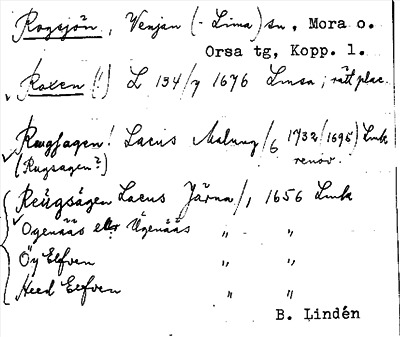 Rogsjön, Venjan (- Lima) sn, Mora o.
Orsa tg, Kopp. l.
Roxen (!) L 134/7 1676 Lmsa; rätt plac.
Raugsagen! Lacus Malung/6 1732/1695) Lmk
(Rugsagen?) renov.
Reügsågen Lacus Järna/1, 1656 Lmk
Ogenääs eller Ögenääs " "
Öy Elfven " "
Heed Elfven " "
B. Lindén